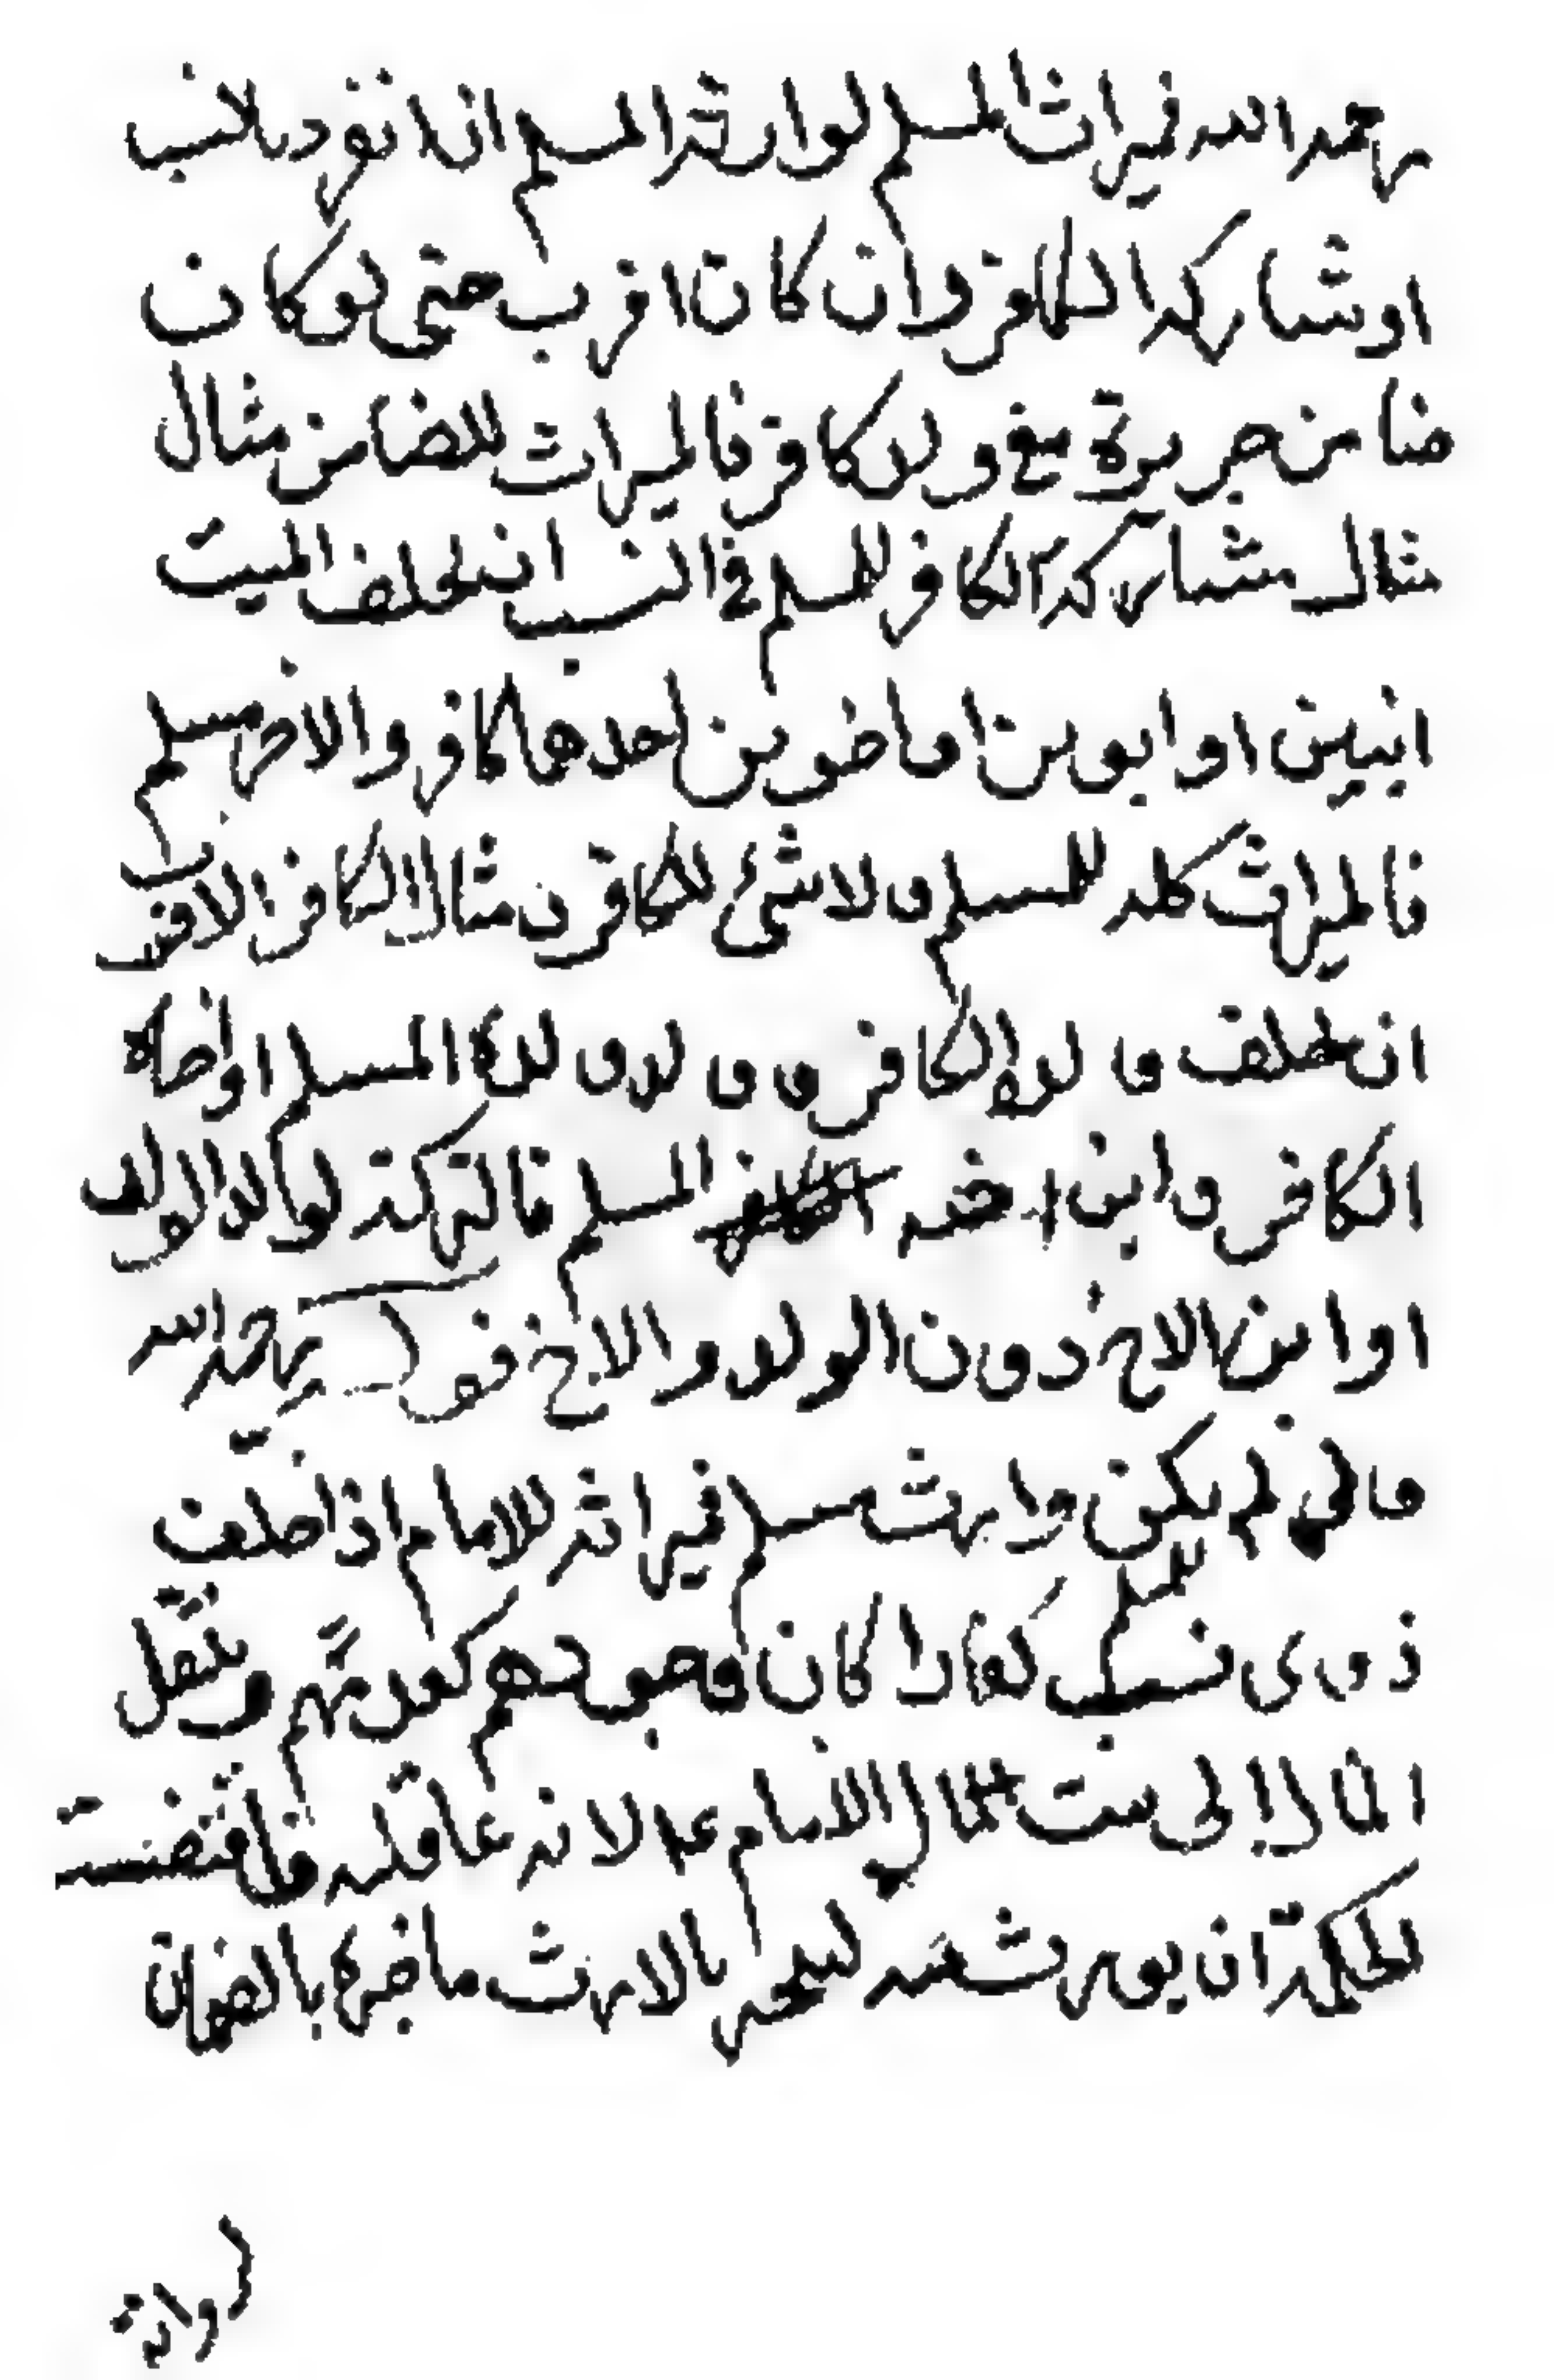 رحمه الله فميراث المسلم لوارثه المسلم انفرد بالنسب
او شاركه الكافر وان كان اقرب حتى لو كان
ضامن جريرة مع ولد كافر فالميراث للضامن مثال
مثال مشاركه الكافر للمسلم في النسب ان يخلف الميت
ابنين او ابوين او اخوين احدهما كافر والاخر مسلم
فالميراث كله للمسلم ولا شئ للكافر ن مثال الكافر الاقرب
ان يخلف ولده الكافر وولد ولده المسلم او اخاه
الكافر وابن اخيه المسلم فالتركة لولد الولد
او ابن الاخ دون الولد والاخ قوله رحمه الله
ولو لم يكن وارث مسلم فميراثه للامام اذا خلف
ذوى نسب للمسلم كفارا كان وجودهم كعدمهم وينتقل
المال الى بيت مال الامام ع لانه عاقلته فاقتضت
الحكمة ان يورث منه ليجبر بالارث ما خسره بالضمان
وانه